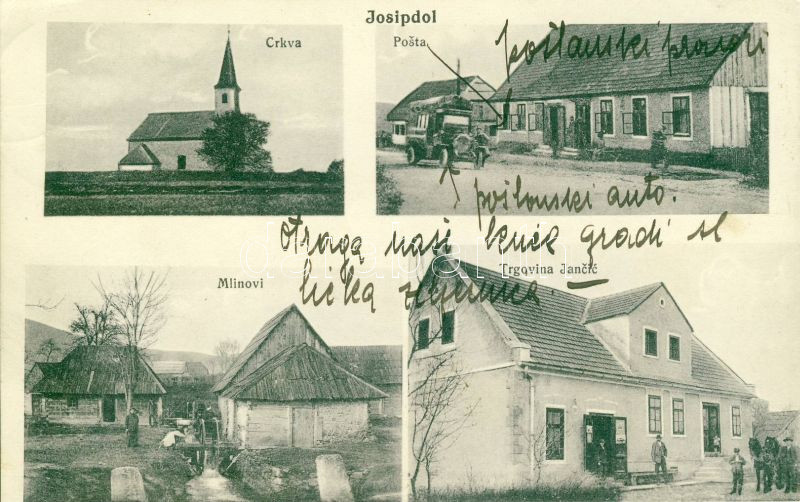 Josipdol
Crkva
Pošta
poštanski
poštanski auto.
Otraga naši kuće gradi se
lička
Mlinovi
Trgovina Jančić